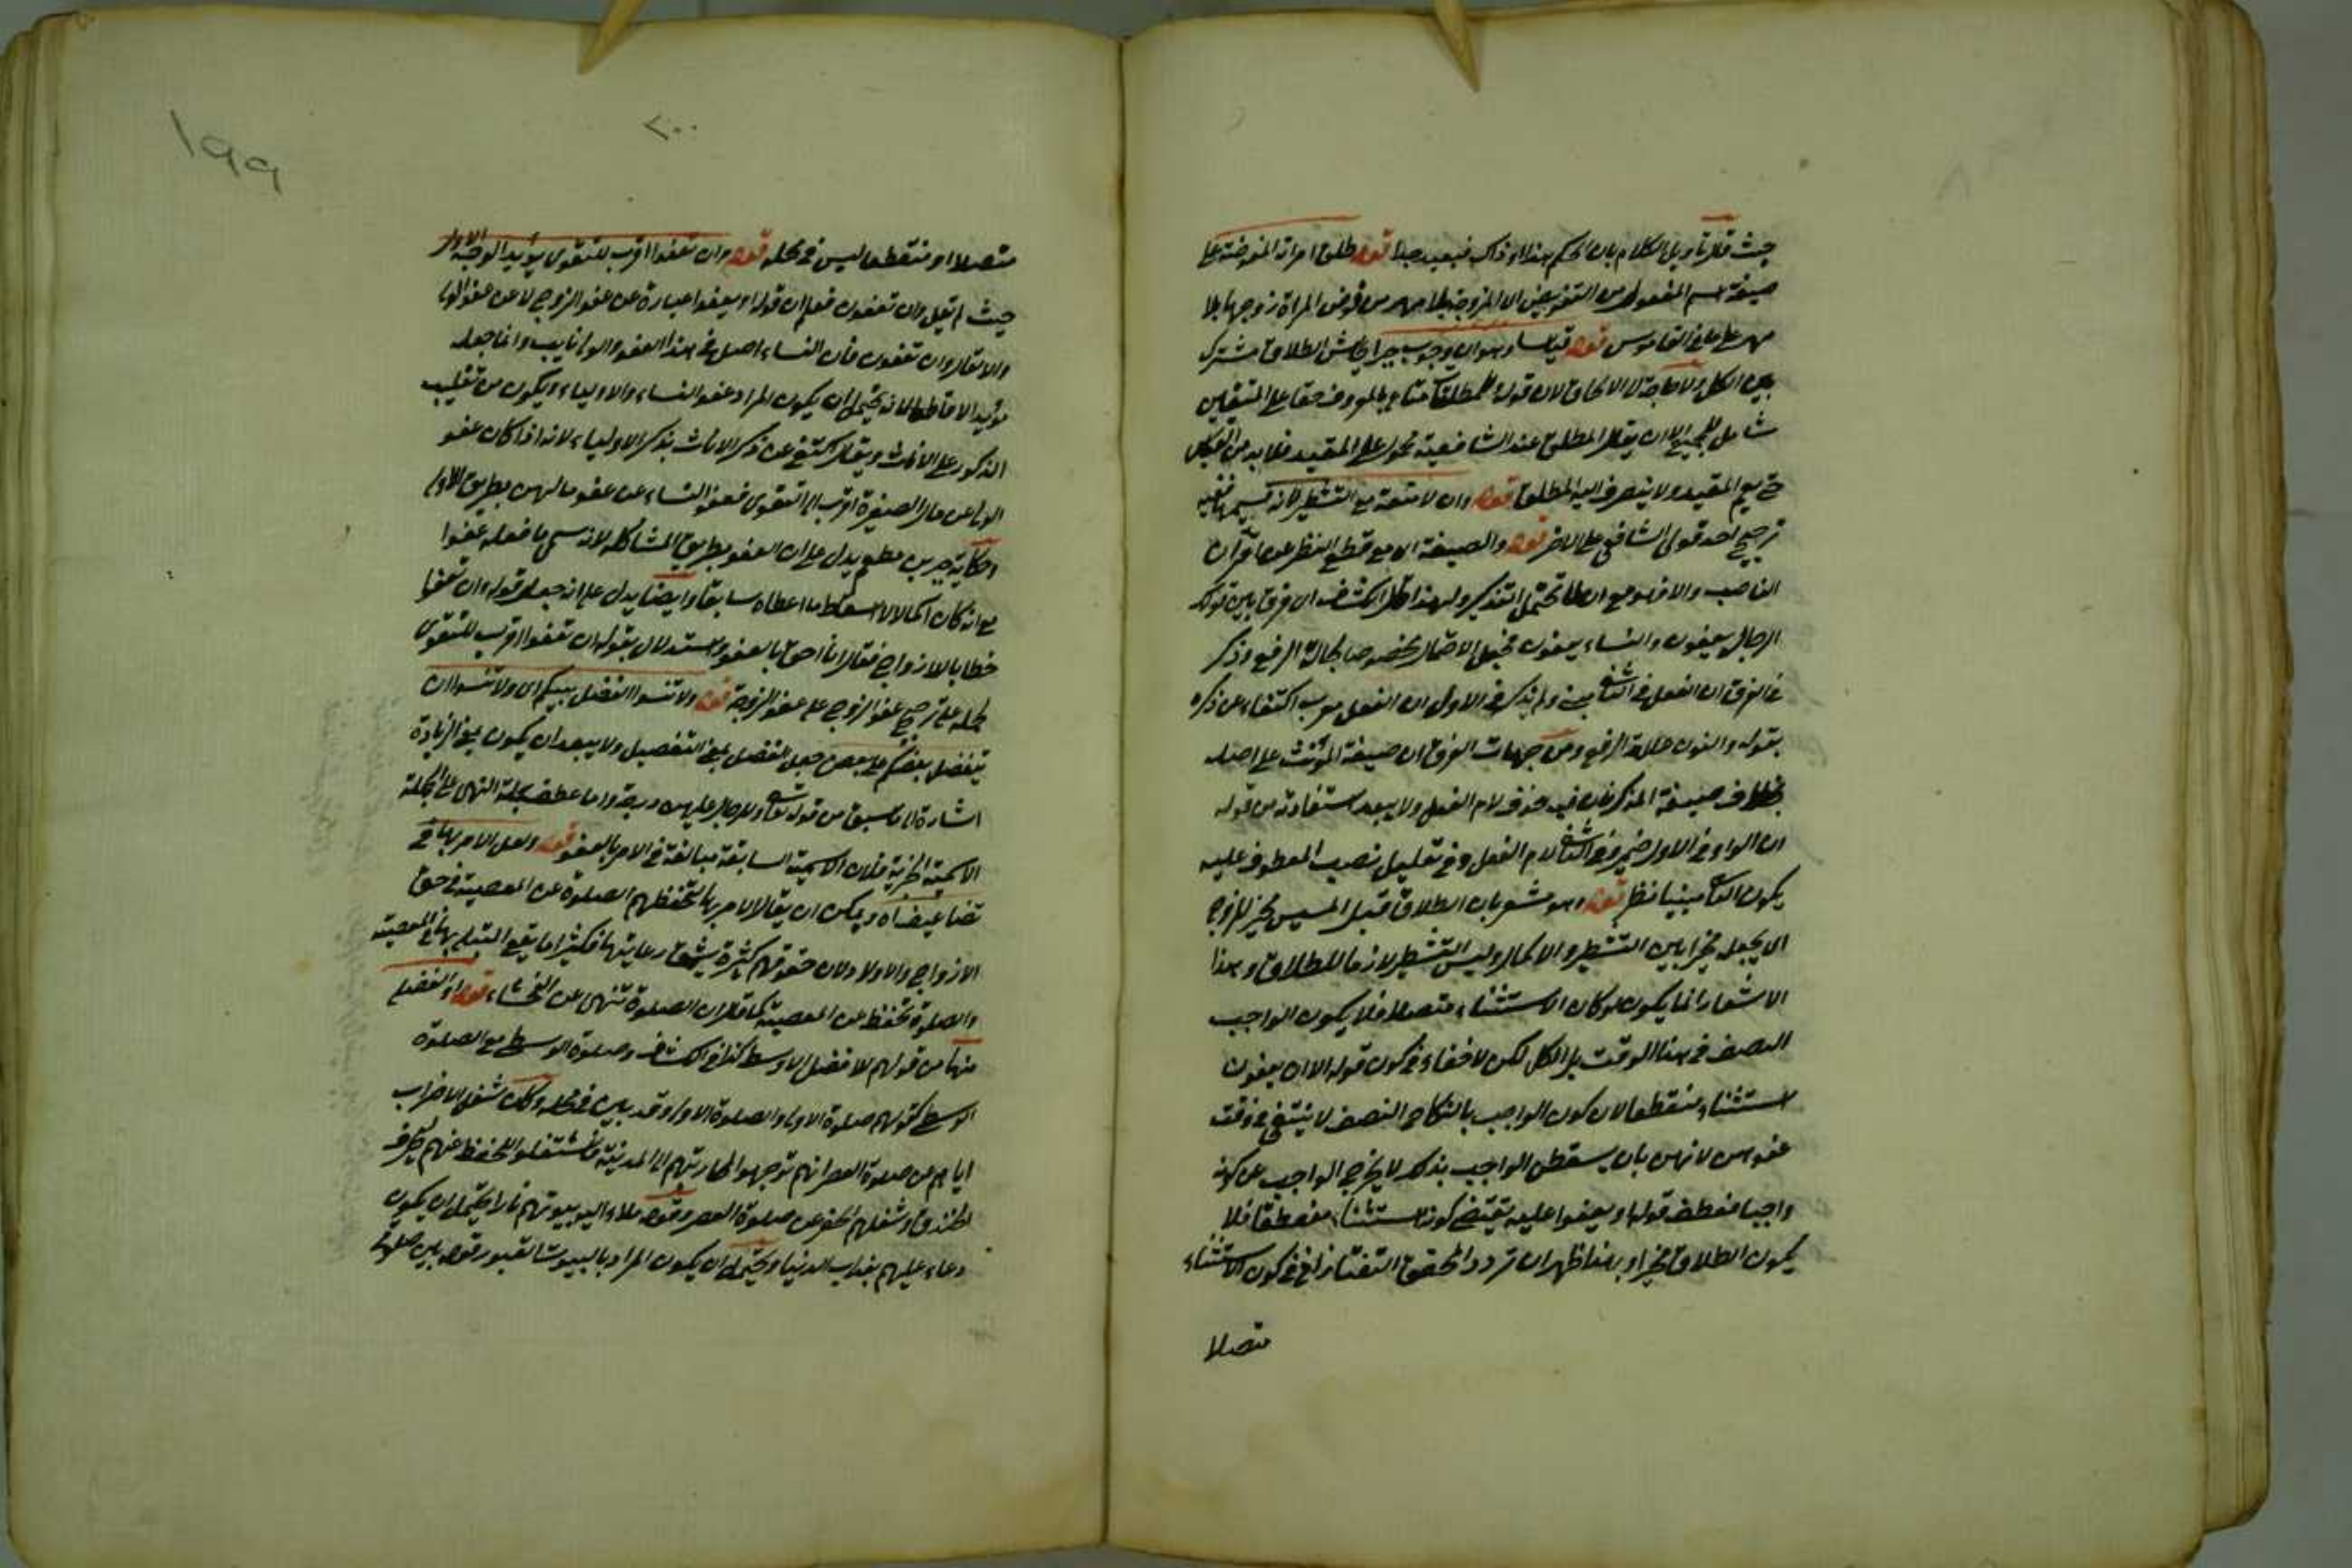 حيث قال تاويل الكلام بان الحكم هذا او ذاك فبعيد جدا قوله طلق امراته المفوضة على
صيغة اسم المفعول من التفويض اى المزوجة بلا مهر من فوض المراة زوجها بلا
مهر على ما فى القاموس قوله قياسا وهو ان وجوب جبر ايحاش الطلاق مشترك
بين الكل ولا حاجة الى الالحاق لان قوله وللمطلقات متاع بالمعروف حقا على المتقين
شامل للجميع الا ان يقال المطلق عند الشافعية محمول على المقيد فلا بد من القياس
حتى يعم المقيد ولا ينصرف اليه المطلق قوله وان لا متعة مع التشطير لانه قسيمها فيه
ترجيح احد قولى الشافعى على الاخر قوله والصيغة اى مع قطع النظر عما قرآن
الناصب والا فهو مع ان لا تحتمل التذكير ولهذا قال الكشاف اى فرق بين قولك
الرجال يعفون والنساء يعفون فجعل الاحتمال مخصوصا بحالة الرفع وذكر
فى الفرق ان الفعل فى الثانى مبنى ولم يذكر فى الاول ان الفعل معرب اكتفاء عن ذكره
بقوله والنون علامة الرفع ومن جهات الفرق ان صيغة المؤنث على اصله
بخلاف صيغة المذكر فان فيه حذف لام الفعل ولا يبعد استفادته من قوله
ان الواو فى الاول ضمير وفى الثانى لام الفعل وفى تعليل نصب المعطوف عليه
يكون الثانى مبنيا نظر قوله وهو مشعر بان الطلاق قبل المسيس مخير للزوج
اى يجعله مخيرا بين التشطير والاكمال وليس التشطير لازما للطلاق وهذا
الاشعار انما يكون لو كان الاستثناء متصلا فلا يكون الواجب
النصف فى هذا الوقت بل الكل لكن لا خفاء فى كون قوله الا ان يعفون
استثناء منقطعا لان كون الواجب بالنكاح النصف لا ينتفى فى وقت
عفوهن لانهن بان يسقطن الواجب بذلك لا يخرج الواجب عن كونه
واجبا فعطف قوله او يعفوا عليه يقتضى كونه استثناء منقطعا فلا
يكون الطلاق مخيرا وبهذا ظهر ان تردد المحقق التفتازانى فى كون الاستثناء
متصلا
١٩٩
٢٠٠
متصلا او منقطعا ليس فى محله قوله وان تعفوا اقرب للتقوى يؤيد الوجه الاول
حيث لم يقل وان تعفون فعلم ان قوله او يعفوا عبارة عن عفو الزوج لا عن عفو الولى
والا لقال وان تعفون فان النساء اصل فى هذا العفو والولى نايب وانما جعله
مؤيدا لا قاطعا لانه يحتمل ان يكون المراد عفو النساء والاولياء ويكون من تغليب
الذكور على الاناث ويقال اكتفى عن ذكر الاناث بذكر الاولياء لانه اذا كان عفو
الولى عن مال الصغيرة اقرب الى التقوى فعفو النساء عن عفو مالهن بطريق الاولى
وحكاية جبير بن مطعم يدل على ان العفو بطريق المشاكلة لانه سمى ما فعله عفوا
مع انه كان اكمالا لا اسقاط ما اعطاه سابقا وايضا يدل على انه جعل قوله وان تعفوا
خطابا للازواج فقال انا احق بالعفو واستدلال بقوله ان تعفوا اقرب للتقوى
لحمله على ترجيح عفو الزوج على عفو الزوجة قوله ولا تنسوا الفضل بينكم اى ولا تنسوا ان
يتفضل بعضكم على بعض جعل الفضل بمعنى التفضيل ولا يبعد ان يكون بمعنى الزيادة
اشارة الى ما سبق من قوله تعالى وللرجال عليهن درجة واما عطف جملة النهى على الجملة
الاسمية الخبرية فلان الاسمية السابقة مبالغة فى الامر بالعفو قوله ولعل الامر بها فى
تضاعيف اه ويمكن ان يقال الامر بها لتحفظهم الصلوة عن المعصية فى حق
الازواج والاولاد لان حقوقهم كثيرة يشق رعايتها فكثيرا ما يقع المبتلى بها فى المعصية
والصلوة تحفظ عن المعصية كما قال ان الصلوة تنهى عن الفحشاء قوله او الفضلى
منها من قولهم للافضل الاوسط كذا فى الكشاف وصلوة الوسطى مع الصلوة
الوسطى كقولهم صلوة الاولى والصلوة الاولى وقد بين فى محله وكان شغل الاحزاب
اياهم عن صلوة العصر انهم توجهوا لمحاربتهم الى المدينة فاشتغلوا للحفظ عنهم بحفر
الخندق وشغلهم الحفر عن صلوة العصر وقوله ملاء الله بيوتهم نارا يحتمل ان يكون
دعاء عليهم بعذاب الدنيا ويحتمل ان يكون المراد بالبيوت القبور قوله بين صلوتى